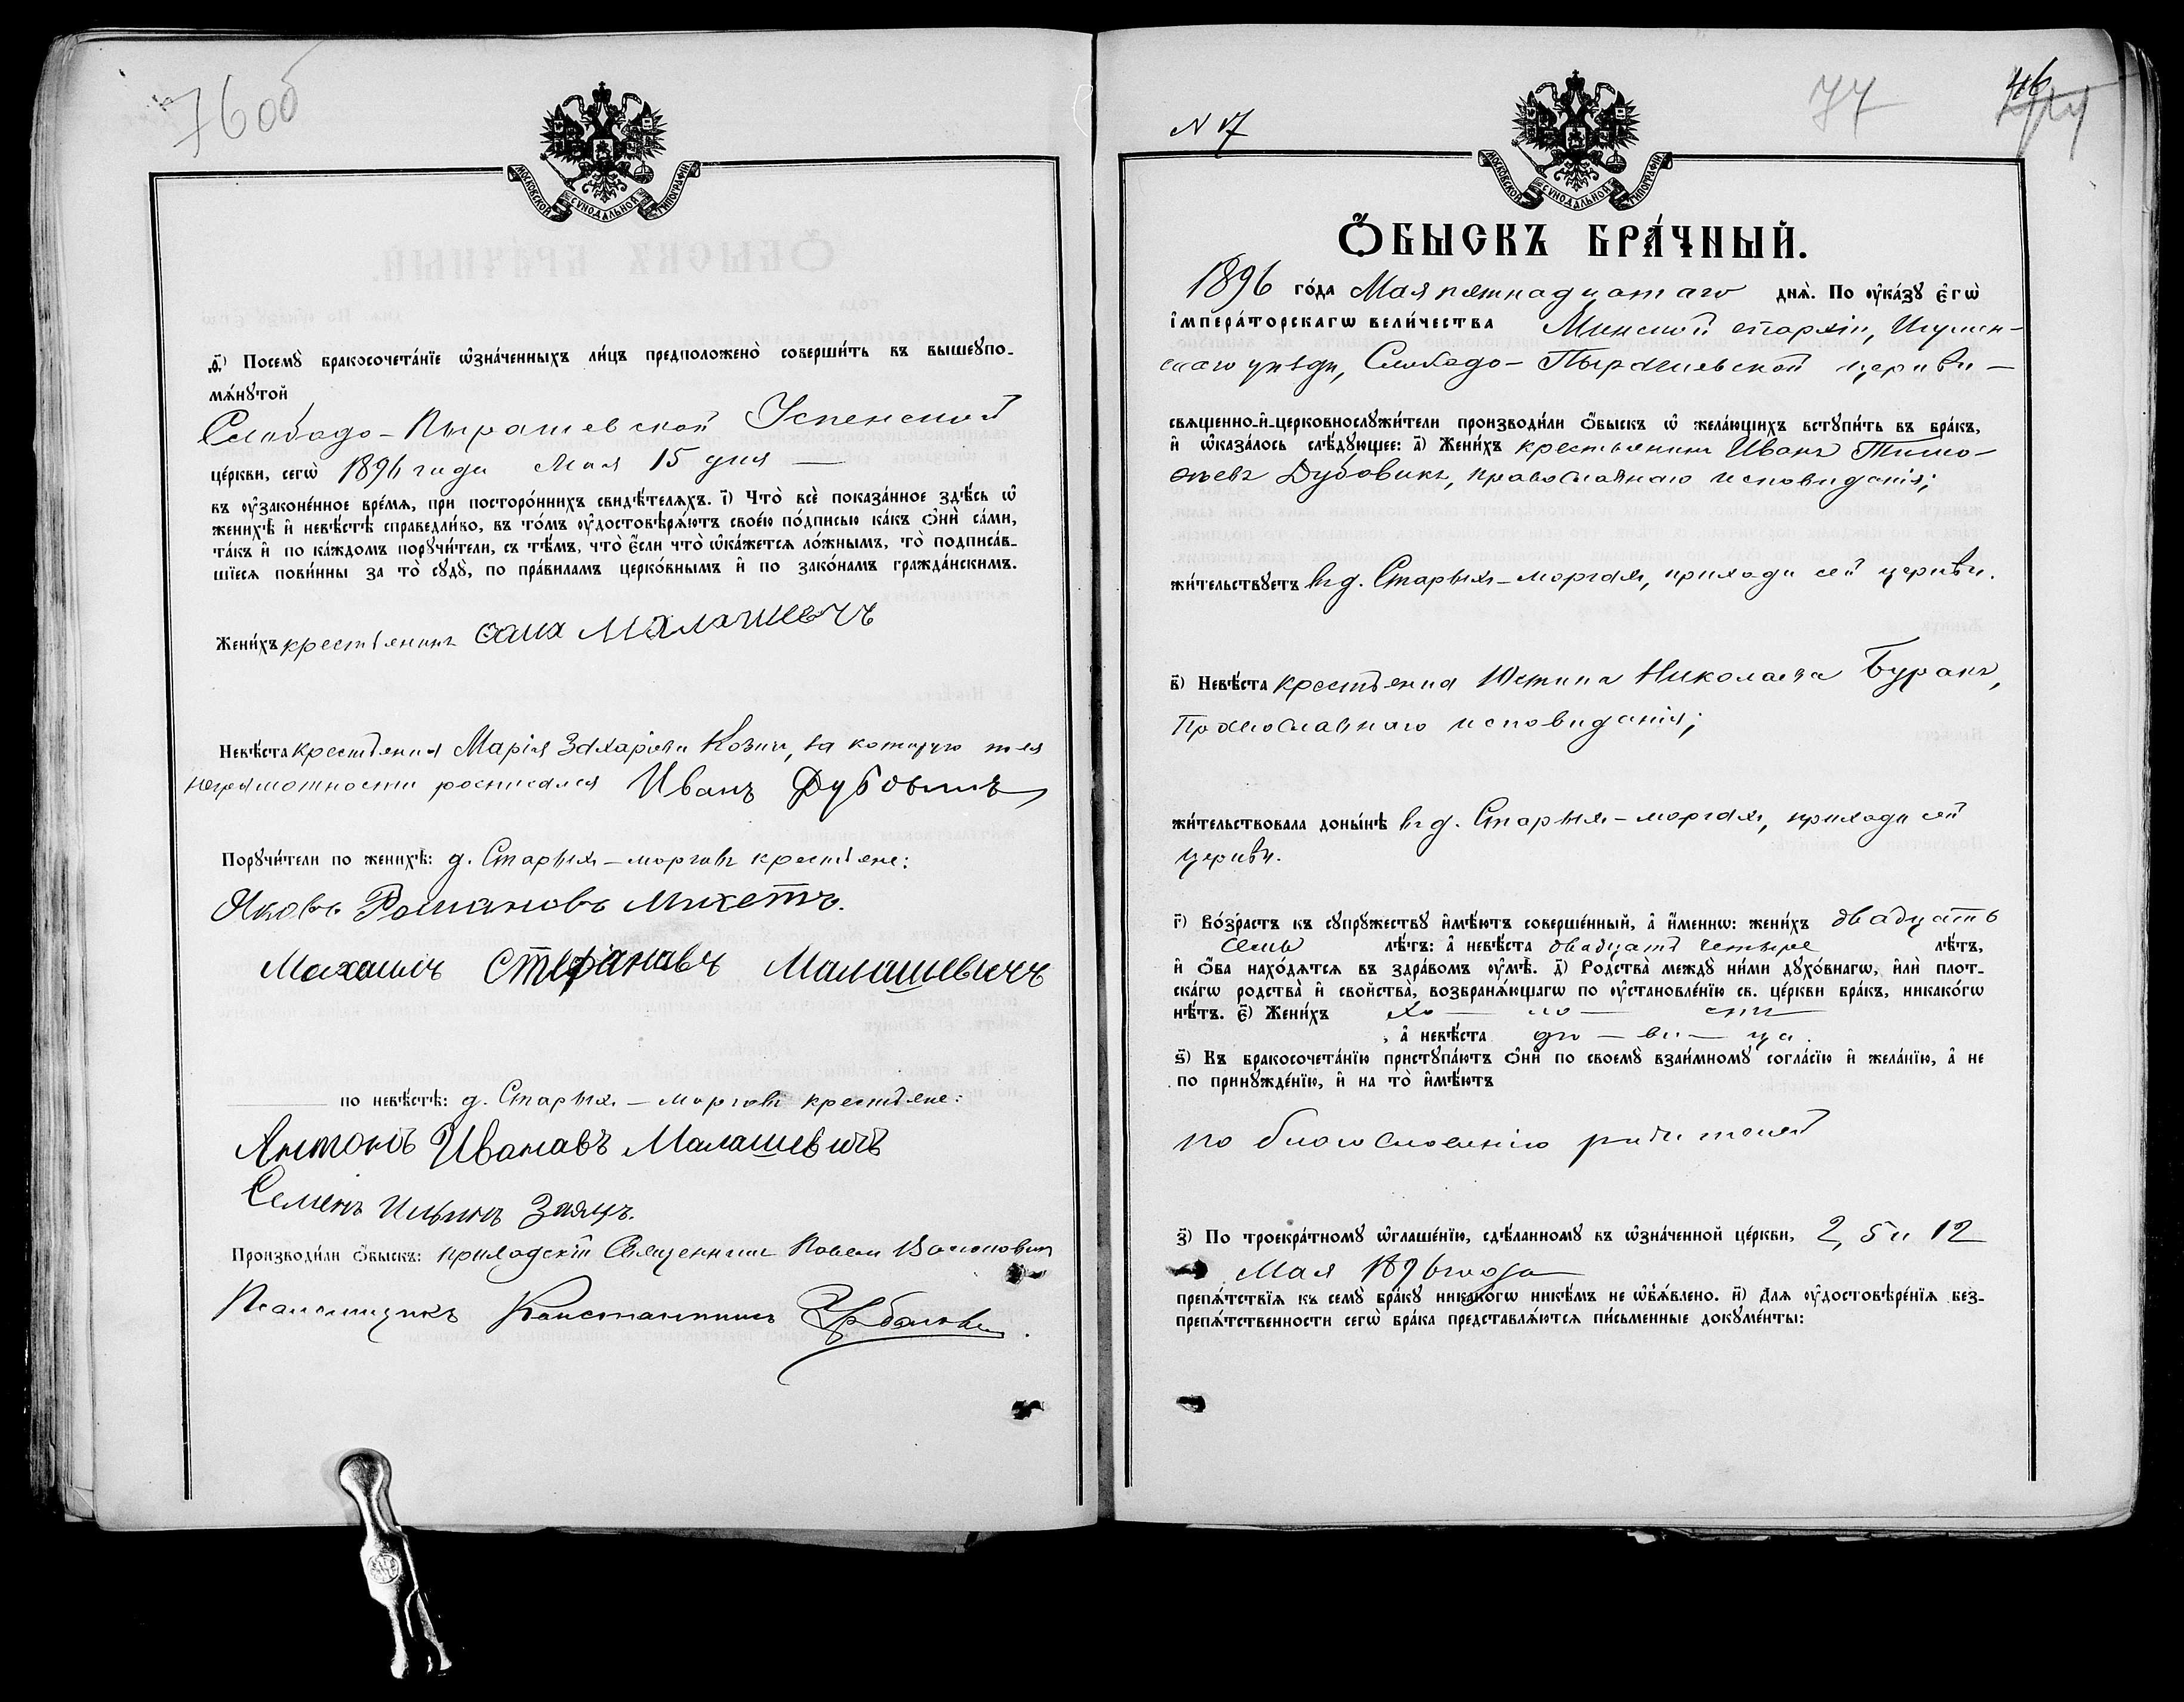 76 об
МОСКОВСКОЙ СѴНОДАЛЬНОЙ ТИПОГРАФІИ
д҃) Посемꙋ̀ бракосочета́нїе ѡ҆зна́ченныхъ ли́цъ предположено̀ соверши́ть въ вышеꙋпо-
мѧ́нꙋтой
Слободо-Пырашевской Успенской
це́ркви, сегѡ̀ 1896 года Мая 15 дня —
въ ᲂу҆законе́нное вре́мѧ, при посторо́ннихъ свидѣ́телѧхъ. і҃) Что̀ всѐ показа́нное здѣ́сь ѡ҆
женихѣ̀ и҆ невѣ́стѣ справедли́во, въ то́мъ ᲂу҆достовѣрѧ́ютъ свое́ю по́дписью ка́къ ѻ҆нѝ са́ми,
та́къ и҆ по ка́ждомъ порꙋчи́тели, съ тѣ́мъ, что̀ є҆́сли что̀ ѡ҆ка́жетсѧ ло́жнымъ, то̀ подписа́в-
шїесѧ пови́нны за то̀ сꙋдꙋ̀, по пра́виламъ церко́внымъ и҆ по зако́намъ гражда́нскимъ.
Жени́хъ крестьянинъ Малашевичъ
Невѣ́ста крестьянка Марія Захаріева Козич, за которую по ея
неграмотности росписался Иванъ Дубовикъ
Порꙋчи́тели по женихѣ̀: д. Старыхъ-морговъ крестьяне:
Яковъ Романовъ Михетъ.
Махаилъ Стефанавъ Малашевичъ
по невѣ́стѣ: д. Старыхъ-морговъ крестьяне:
Антонъ Иванавъ Малашевичъ
Семенъ Ильинъ Заяцъ.
Производи́ли ѻ҆́быскъ: приходскій Священникъ Павелъ
Псаломщикъ Константинъ
N 17
77
46
МОСКОВСКОЙ СѴНОДАЛЬНОЙ ТИПОГРАФІИ
Ѻ҆́БЫСКЪ БРА́ЧНЫЙ.
1896 го́да Мая пятнадцатаго днѧ̀. По ᲂу҆ка́зꙋ є҆гѡ̀
і҆мпера́торскагѡ вели́чества Минской епархіи, Игумен-
скаго уѣзда, Слободо-Пырашевской церкви —
свѧщенно-и҆-церковнослꙋжи́тели производи́ли ѻ҆́быскъ ѡ҆ жела́ющихъ встꙋпи́ть въ бра́къ,
и҆ ѡ҆каза́лось слѣ́дꙋющее: а҃) Жени́хъ крестьянинъ Иванъ Тимо-
ѳеевъ Дубовикъ, православнаго исповѣданія;
жи́тельствꙋетъ въ д. Старыхъ-моргахъ, прихода сей церкви.
в҃) Невѣ́ста крестьянка Юстина Николаева Буракъ,
Православнаго исповѣданія;
жи́тельствовала доны́нѣ въ д. Старыхъ-моргахъ, прихода сей
церкви.
г҃) Во́зрастъ къ сꙋпрꙋ́жествꙋ и҆мѣ́ютъ соверше́нный, а҆ и҆́меннѡ: жени́хъ двадцать
семь лѣ́тъ: а҆ невѣ́ста двадцать четыре лѣ́тъ,
и҆ ѻ҆́ба нахо́дѧтсѧ въ здра́вомъ ᲂу҆мѣ̀. д҃) Родства̀ междꙋ̀ ни́ми дꙋхо́внагѡ, и҆лѝ плот-
ска́гѡ родства̀ и҆ свойства̀, возбранѧ́ющагѡ по ᲂу҆становле́нїю св. це́ркви бра́къ, никако́гѡ
нѣ́тъ. є҃) Жени́хъ хо — ло — стъ
, а҆ невѣ́ста дѣ — ви — ца.
ѕ҃) Къ бракосочета́нїю пристꙋпа́ютъ ѻ҆нѝ по своемꙋ̀ взаи́мномꙋ согла́сїю и҆ жела́нїю, а҆ не
по принꙋжде́нїю, и҆ на то̀ и҆мѣ́ютъ
по благословенію родителей
з҃) По троекра́тномꙋ ѡ҆глаше́нїю, сдѣ́ланномꙋ въ ѡ҆зна́ченной це́ркви, 2, 5 и 12
Мая 1896 года
препѧ́тствїѧ къ семꙋ̀ бра́кꙋ никако́гѡ никѣ́мъ не ѡ҆бъѧ́влено. и҃) Длѧ ᲂу҆достовѣре́нїѧ без-
препѧ́тственности сегѡ̀ бра́ка представлѧ́ютсѧ пи́сьменные докꙋме́нты: